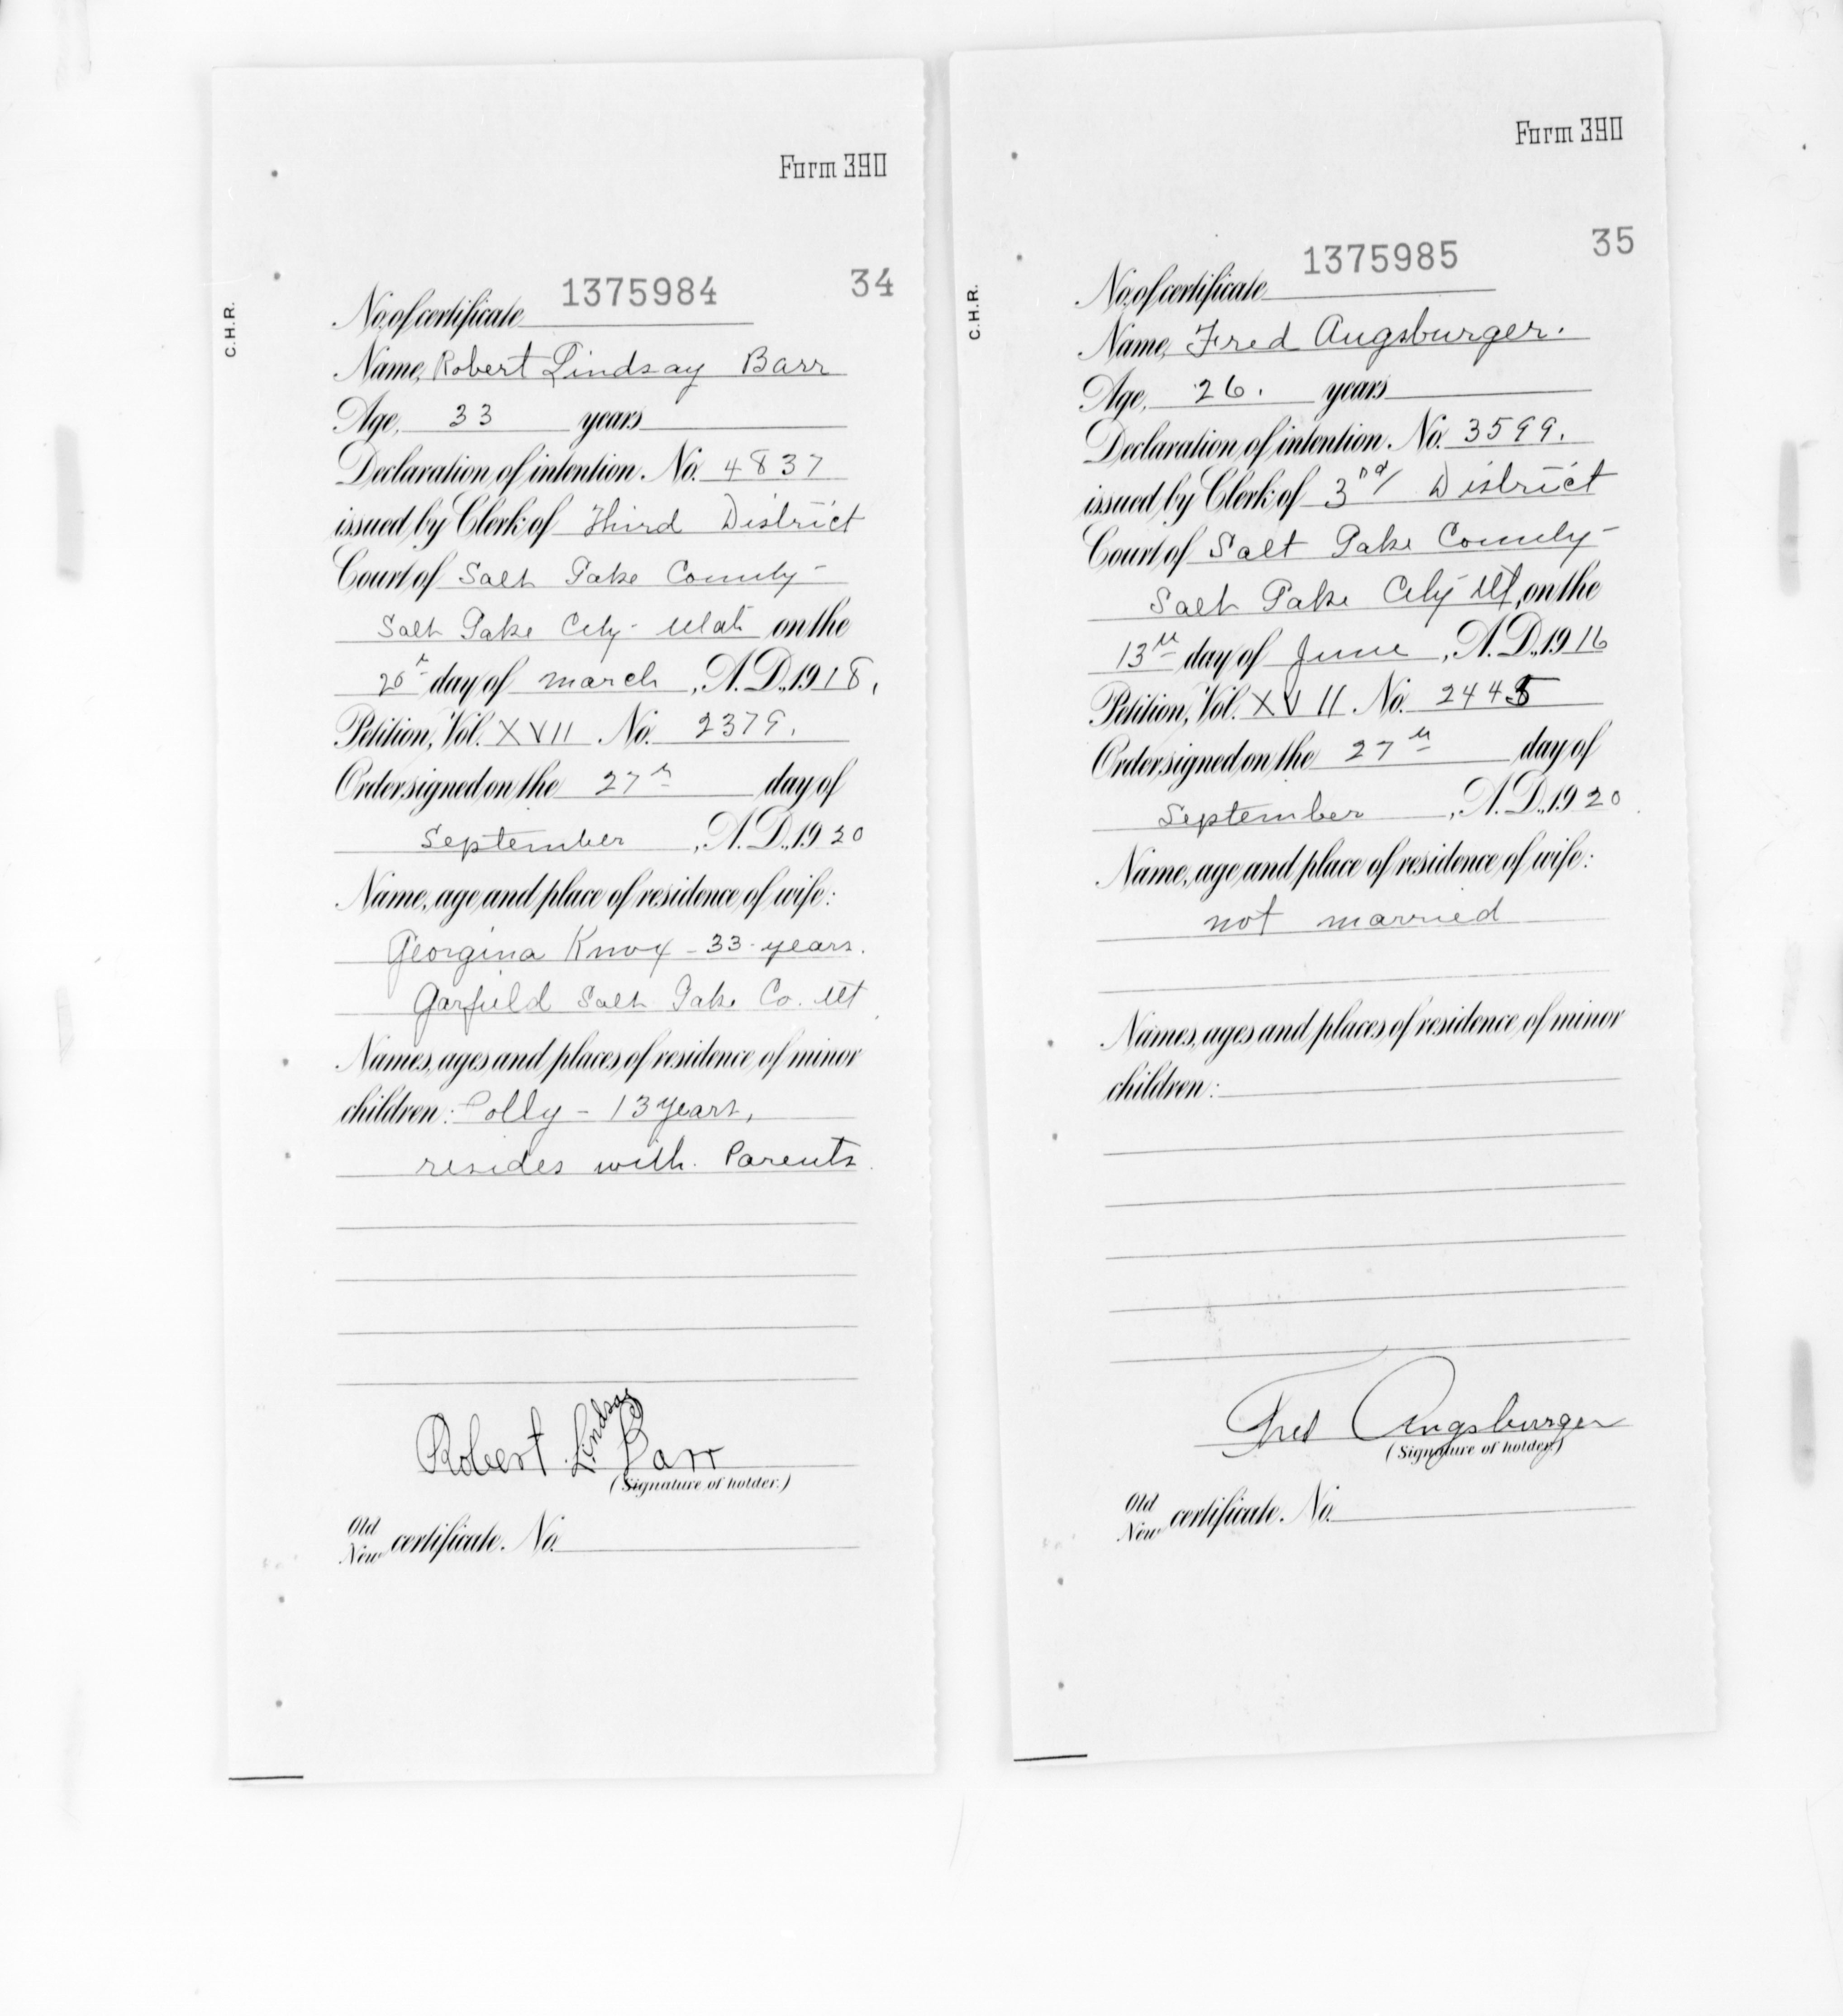 Form 390
C.H.R.
1375984 34
No. of certificate
Name, Robert Lindsay Barr
Age, 33 years
Declaration of intention. No. 4837
issued by Clerk of Third District
Court of Salt Lake County-
Salt Lake City- Utah on the
20th day of march, A.D., 1918,
Petition, Vol. XVII No. 2379.
Order signed on the 27th day of
September, A.D., 1920
Name, age and place of residence of wife:
Georgina Knox - 33 years.
Garfield Salt Lake Co. Ut
Names, ages and places of residence of minor
children: Polly - 13 years,
resides with Parents.
Robert Lindsay Barr
(Signature of holder.)
Old
New certificate. No.
Form 390
C.H.R.
1375985 35
No. of certificate
Name, Fred Augsburger.
Age, 26. years
Declaration of intention. No. 3599.
issued by Clerk of 3nd District
Court of Salt Lake County-
Salt Lake City Ut, on the
13th day of June, A.D., 1916
Petition, Vol. XVII. No. 2445
Order signed on the 27th day of
September, A.D., 1920
Name, age and place of residence of wife:
not married
Names, ages and places of residence of minor
children:
Fred Augsburger
(Signature of holder.)
Old
New certificate. No.